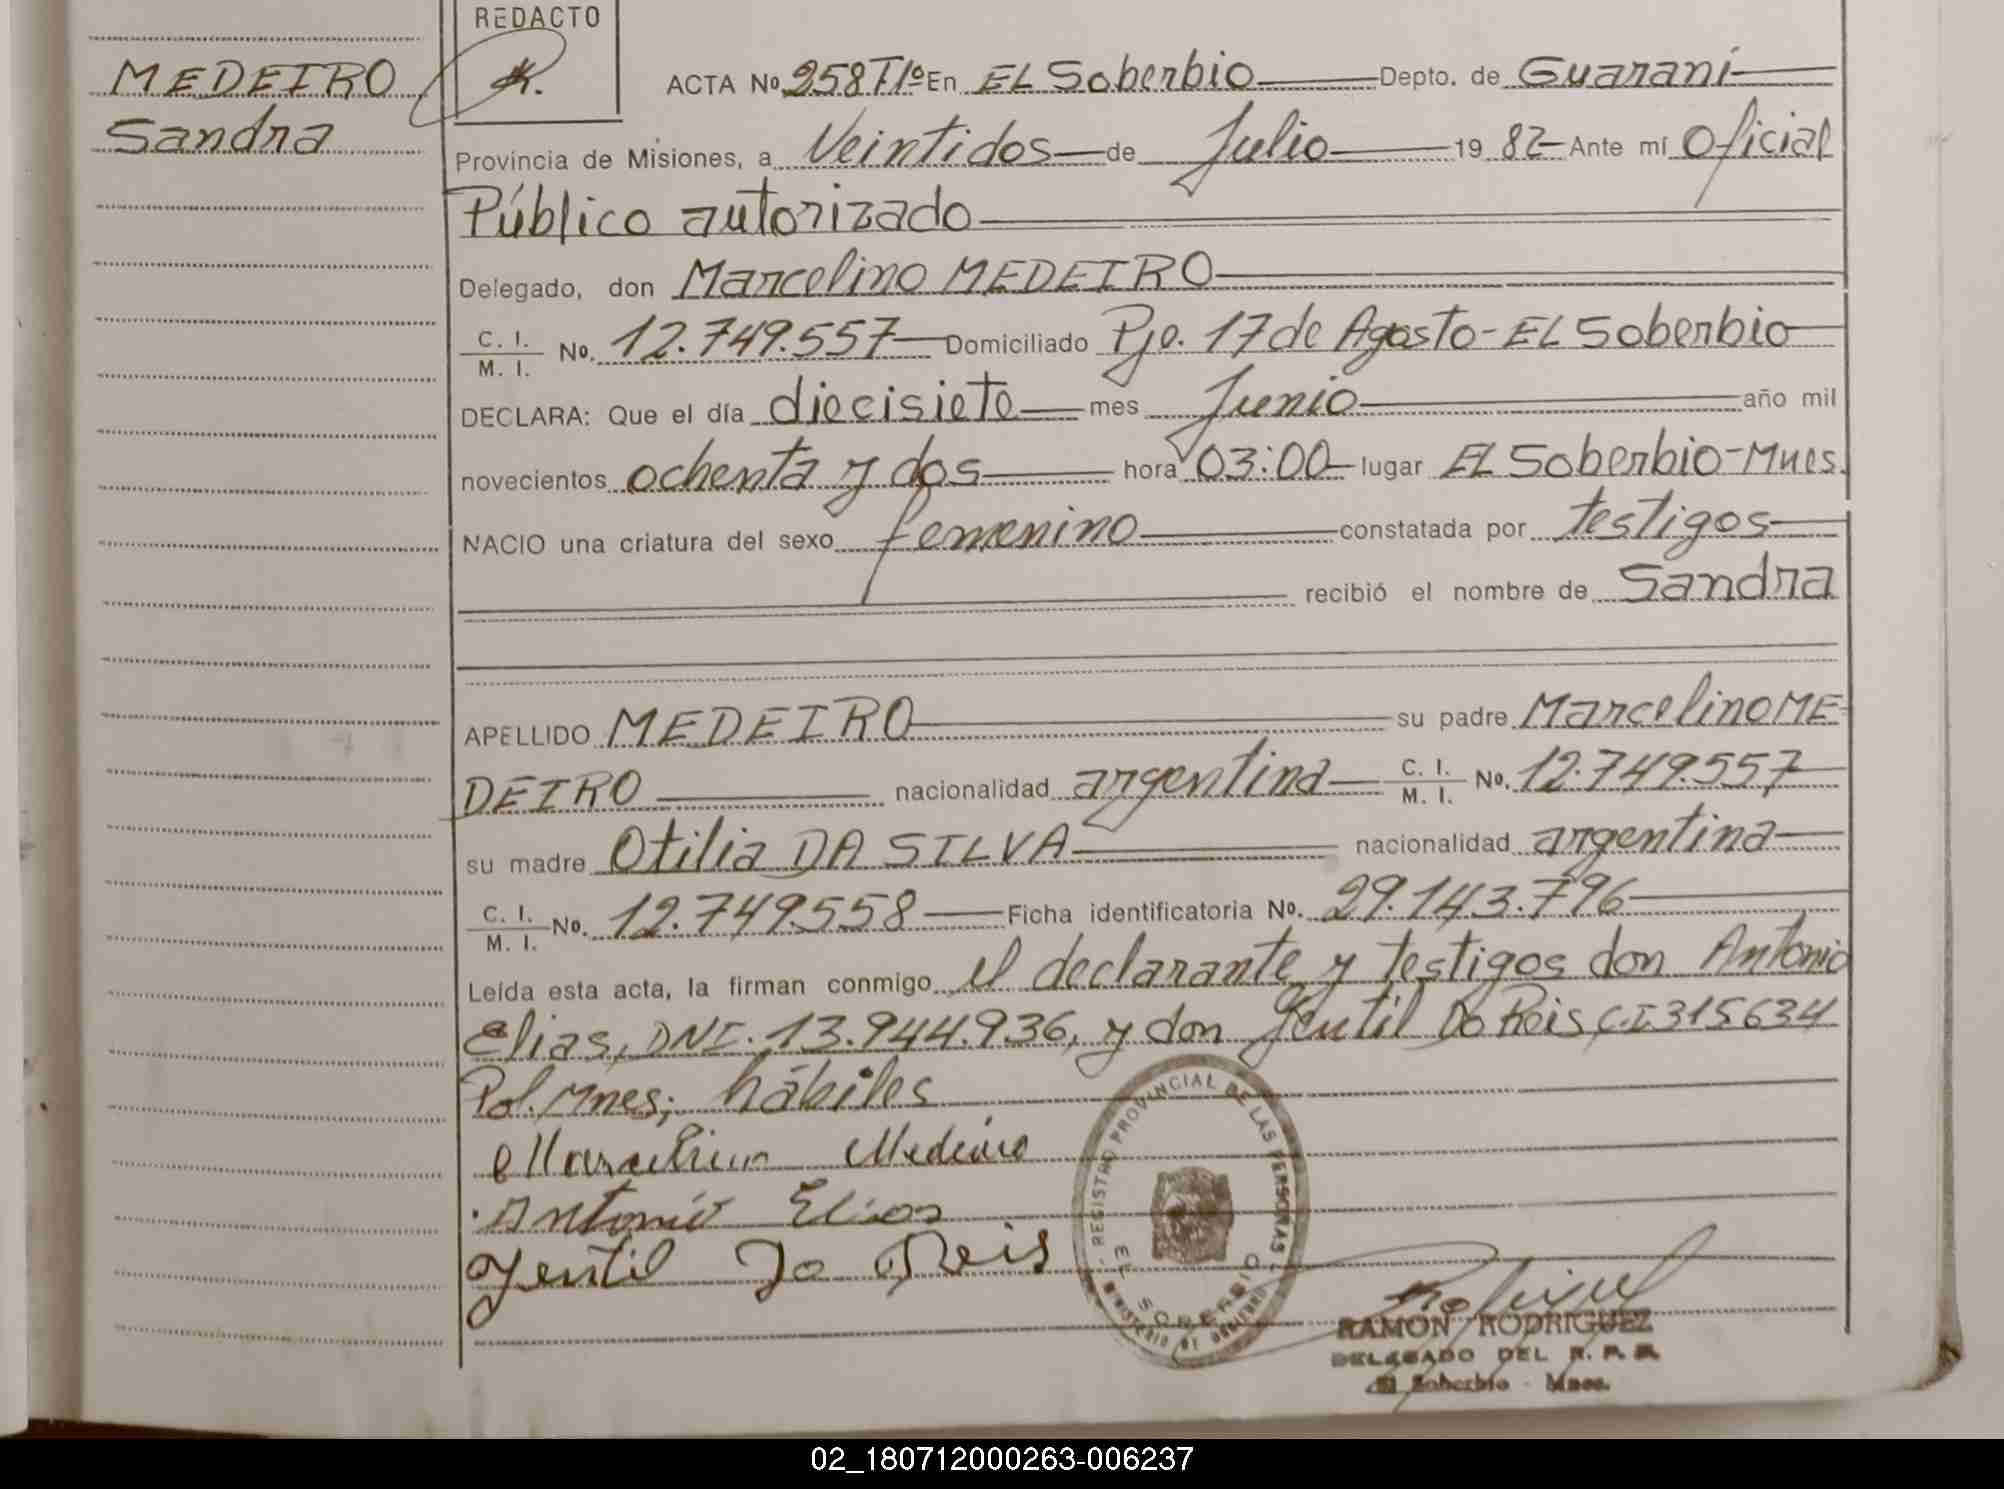 REDACTO
MEDEIRO
Sandra
ACTA Nº 258 T1º En EL Soberbio Depto. de Guaraní
Provincia de Misiones, a Veintidos de Julio 19 82 Ante mí Oficial
Público autorizado
Delegado, don Marcelino MEDEIRO
C. I. / M. I. Nº. 12.749.557 Domiciliado Pje. 17 de Agosto - EL Soberbio
DECLARA: Que el día diecisiete mes Junio año mil
novecientos ochenta y dos hora 03:00 lugar EL Soberbio - Mnes.
NACIO una criatura del sexo femenino constatada por testigos
recibió el nombre de Sandra
APELLIDO MEDEIRO su padre Marcelino ME
DEIRO nacionalidad argentina C. I. / M. I. Nº. 12.749.557
su madre Otilia DA SILVA nacionalidad argentina
C. I. / M. I. Nº. 12.749.558 Ficha identificatoria Nº. 29.143.796
Leída esta acta, la firman conmigo el declarante y testigos don Antonio
Elias, DNI. 13.944.936, y don Gentil Do Reis, C.I. 315634
Pol. Mnes; hábiles
Marcelino Medeiro
Antonio Elias
Gentil Do Reis
REGISTRO PROVINCIAL DE LAS PERSONAS
EL SOBERBIO
MINISTERIO DE GOBIERNO
RAMON RODRIGUEZ
DELEGADO DEL R. P. P.
El Soberbio - Mnes.
02_180712000263-006237